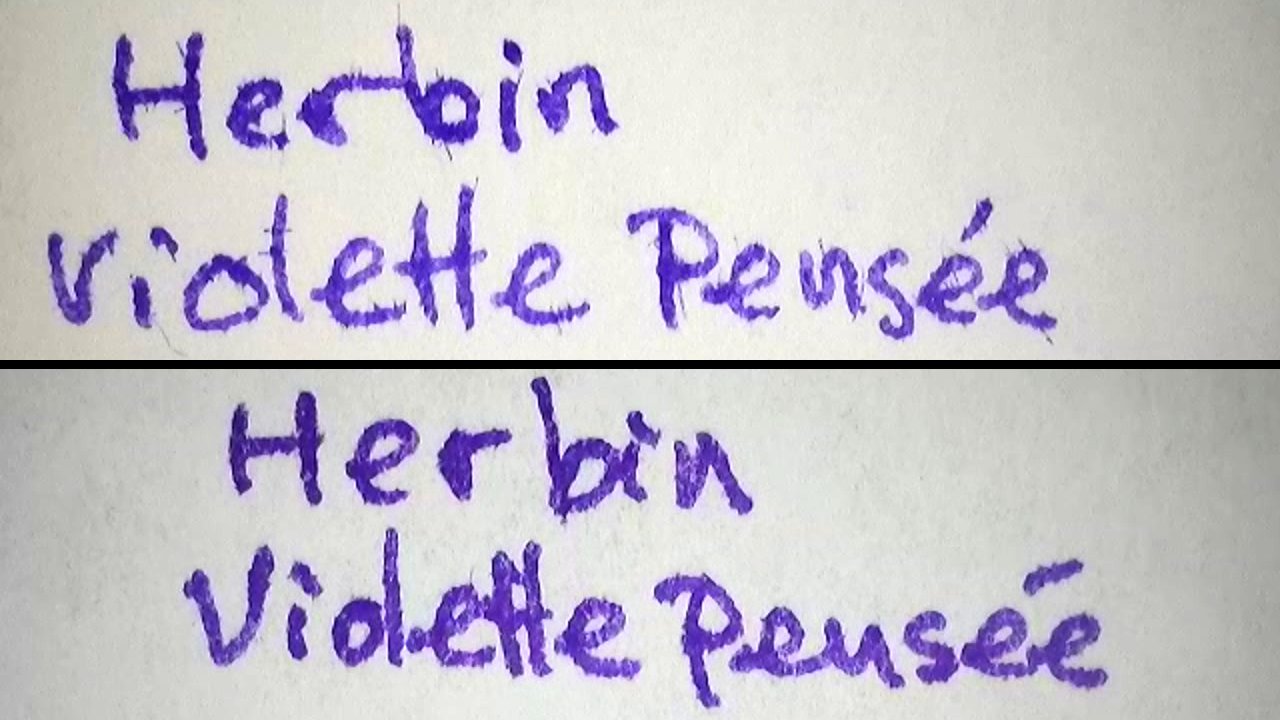 Herbin
Violette Pensée
Herbin
Violette Pensée